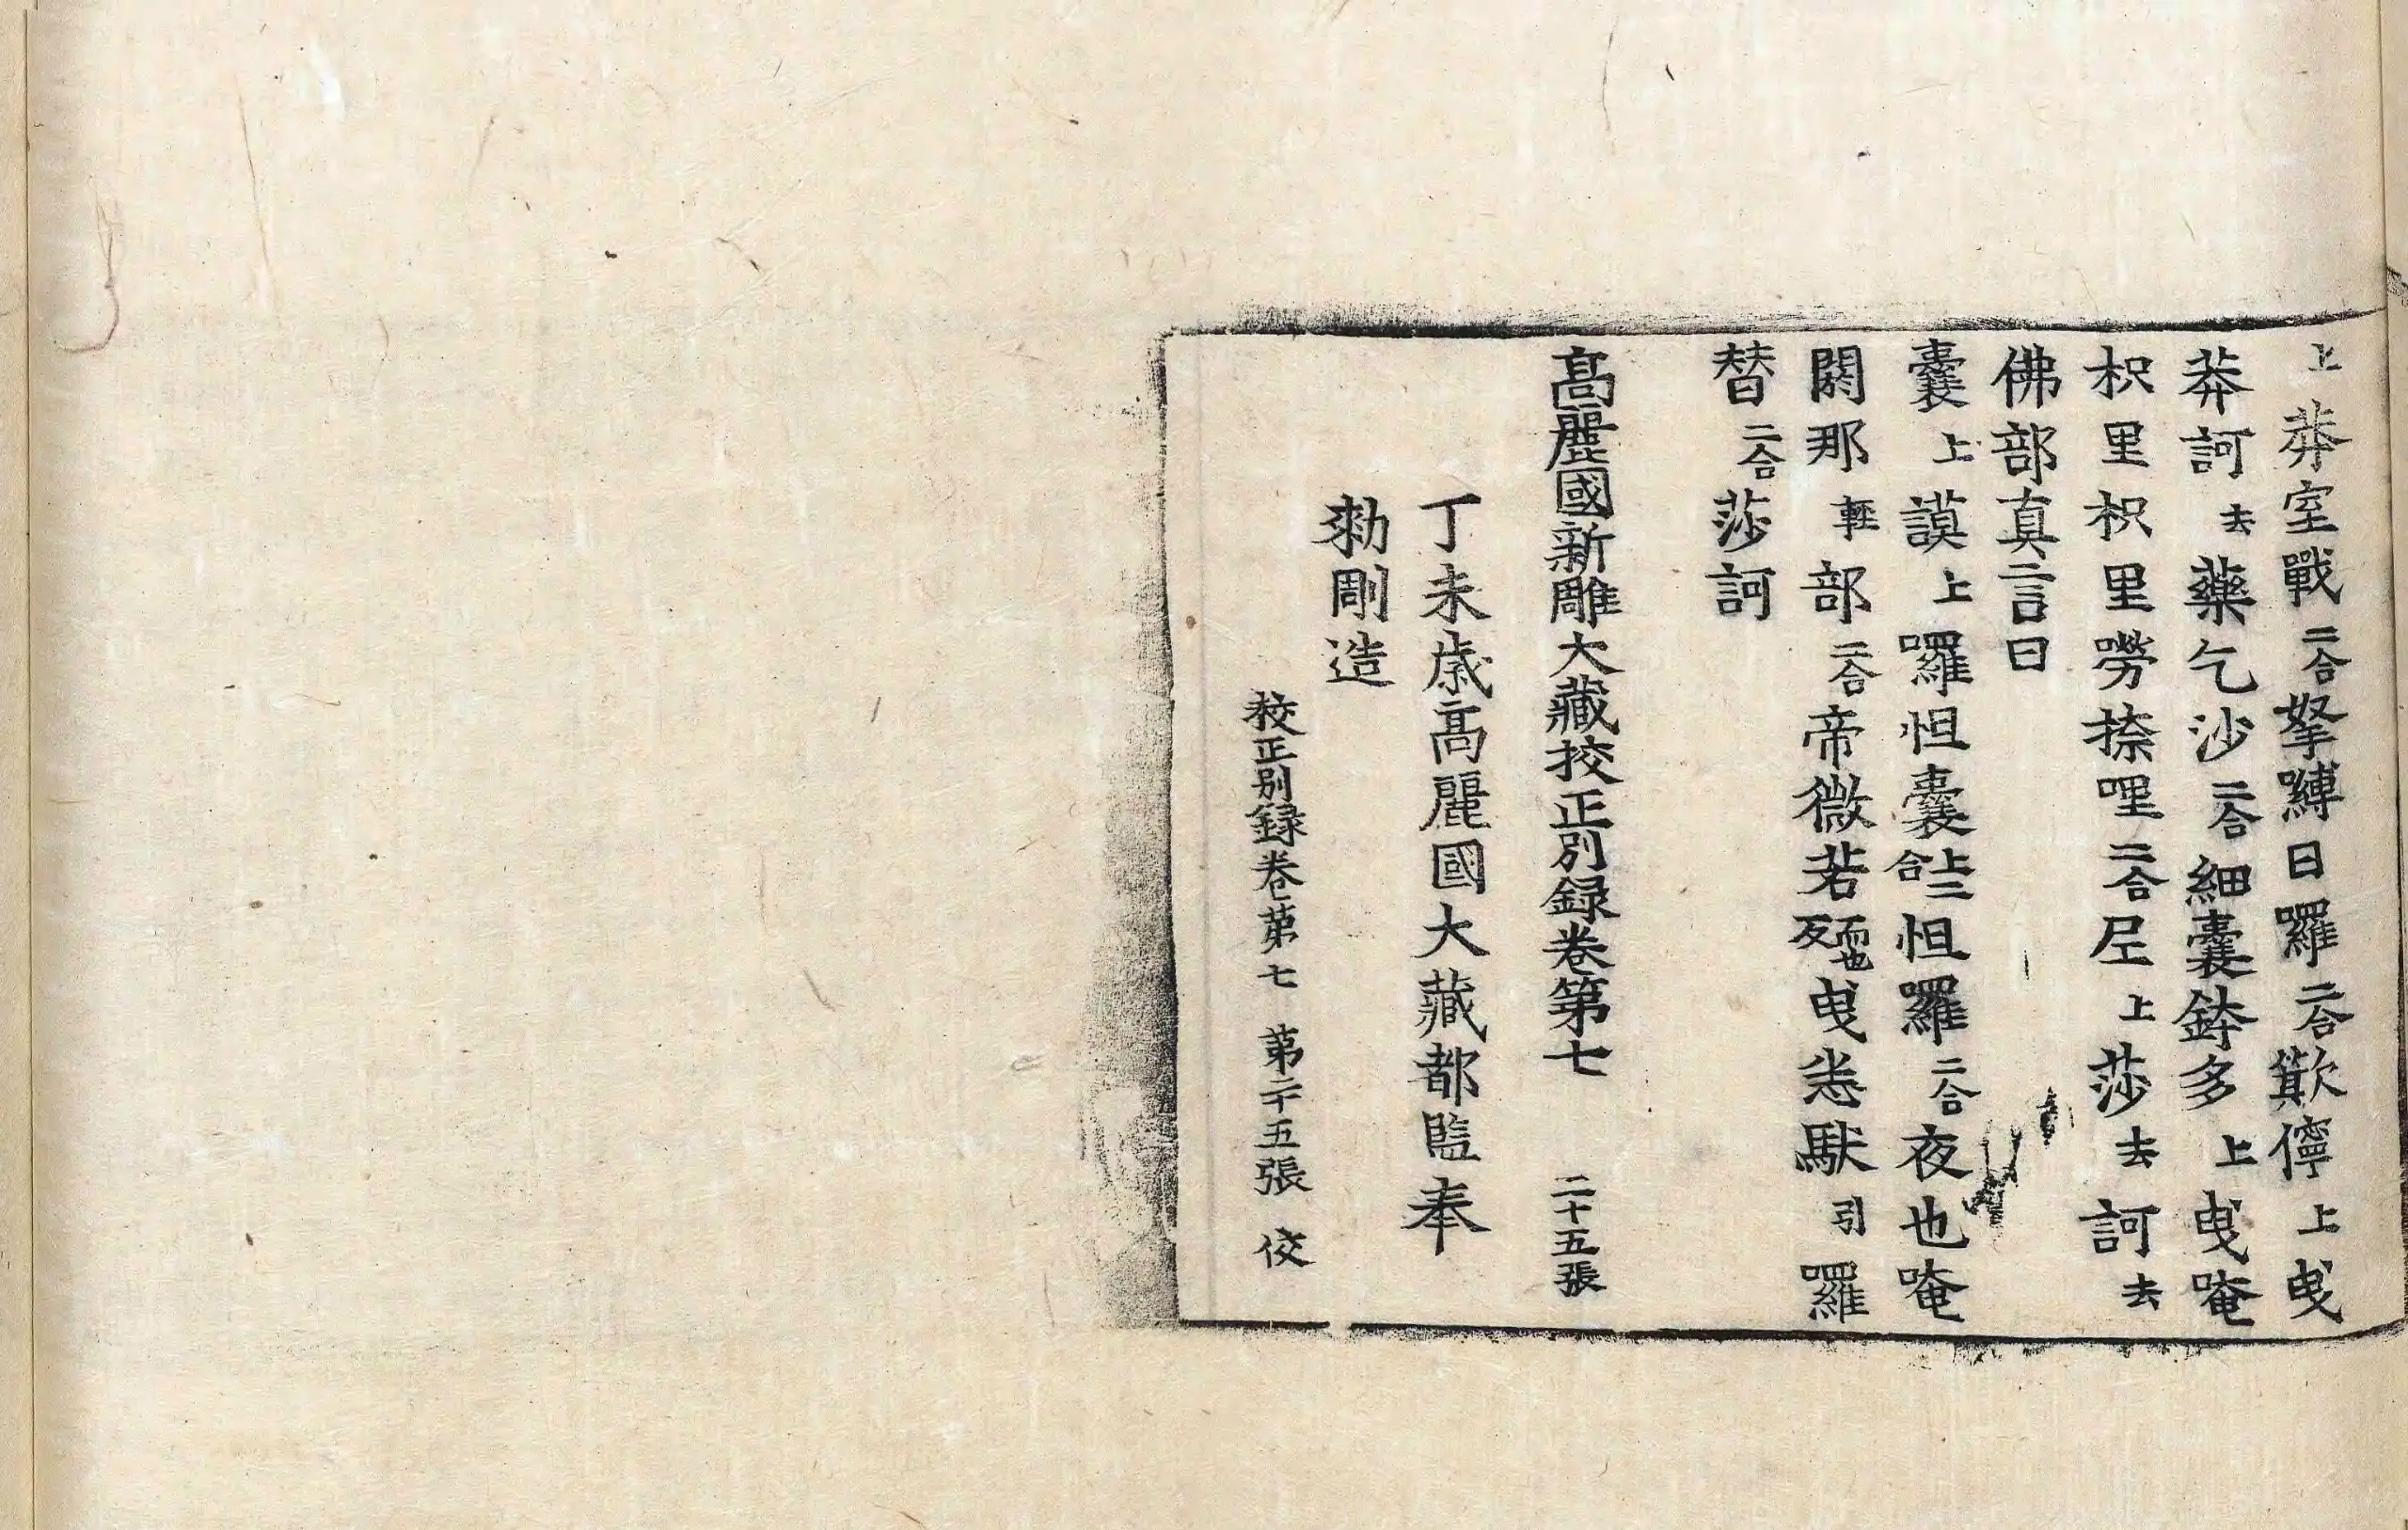 上莽室戰二合拏嚩日囉二合欺儜上曳
莽訶去藥乞沙二合細曩鉢多上曳唵
枳里枳里嘮捺哩二合𡰱上莎去訶去
佛部真言曰
曩上謨上囉怛曩上二合怛羅二合夜也唵
閼那輕部二合帝微若而也反曳悉馱引羅
替二合莎訶
高麗國新雕大藏挍正別録卷第七 二十五張
丁未歳高麗國大藏都監奉
勑剛造
校正別録卷第七 第二十五張 佼